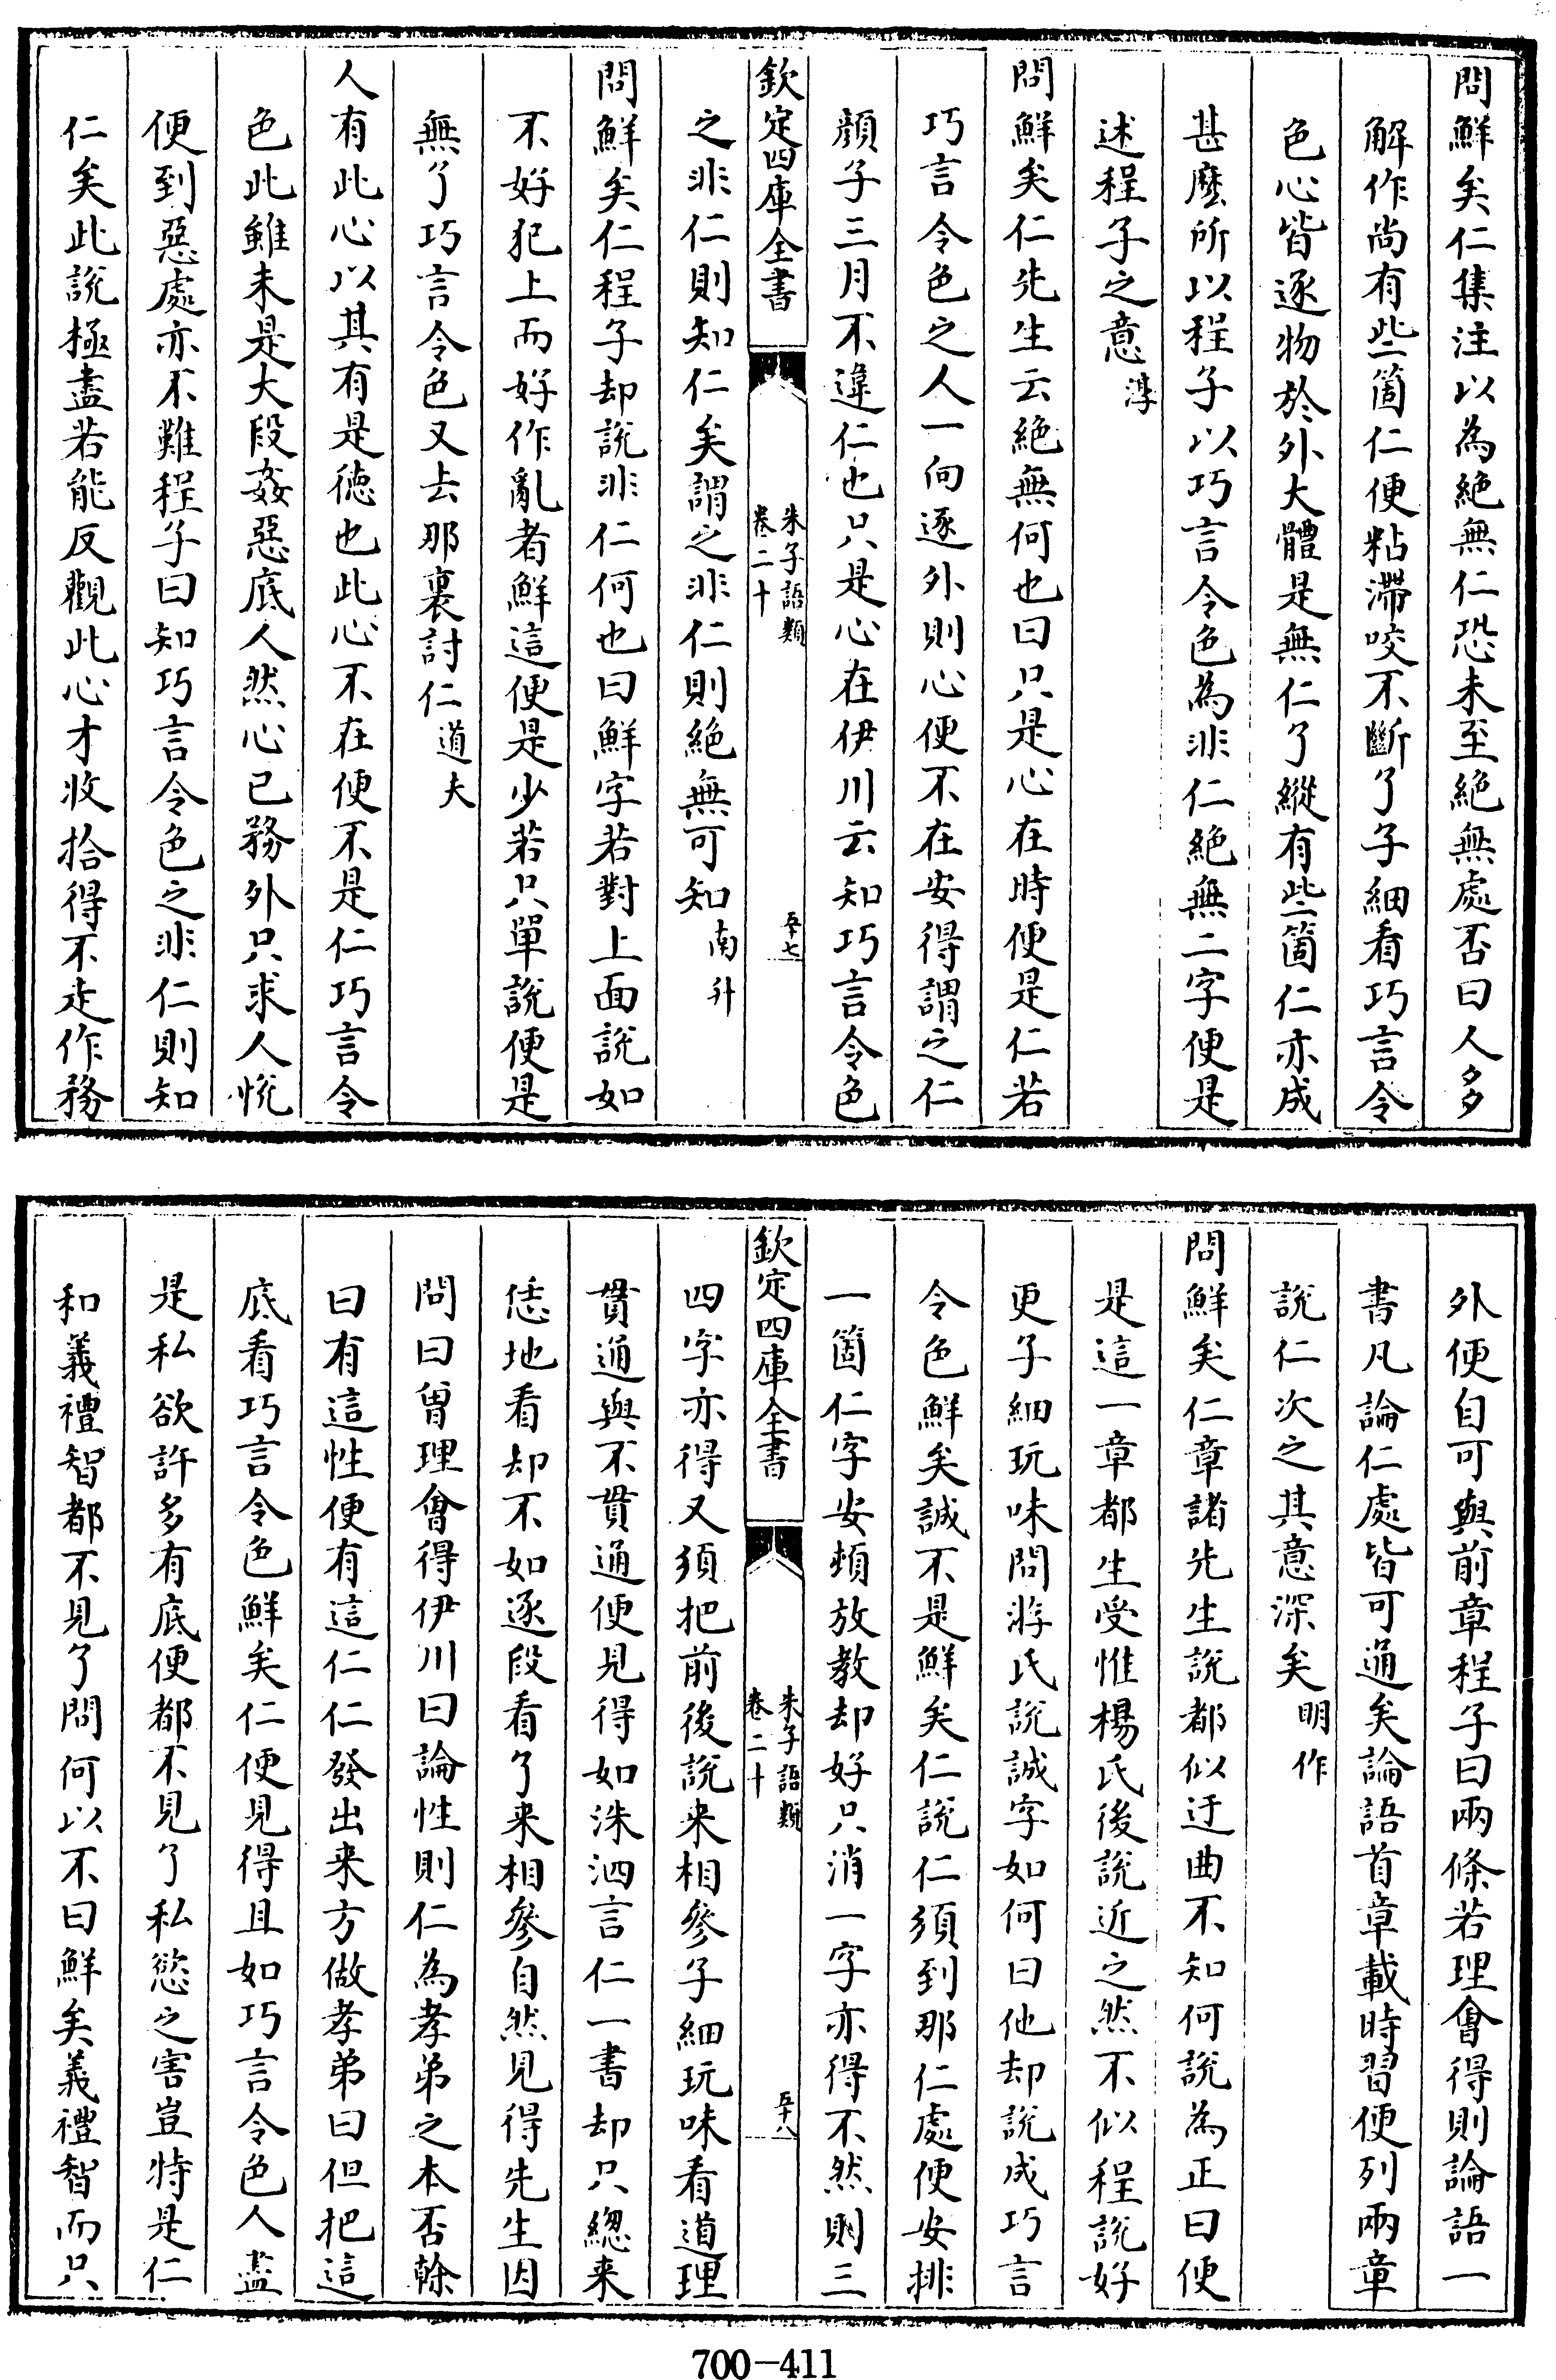 問鮮矣仁集注以為絶無仁恐未至絶無處否曰人多
解作尚有些箇仁便粘滯咬不斷了子細看巧言令
色心皆逐物於外大體是無仁了縱有些箇仁亦成
甚麽所以程子以巧言令色為非仁絶無二字便是
述程子之意淳
問鮮矣仁先生云絶無何也曰只是心在時便是仁若
巧言令色之人一向逐外則心便不在安得謂之仁
顔子三月不違仁也只是心在伊川云知巧言令色
欽定四庫全書
朱子語類
卷二十
五十七
之非仁則知仁矣謂之非仁則絶無可知南升
問鮮矣仁程子却說非仁何也曰鮮字若對上面說如
不好犯上而好作亂者鮮這便是少若只單說便是
無了巧言令色又去那裏討仁道夫
人有此心以其有是徳也此心不在便不是仁巧言令
色此雖未是大段姦惡底人然心已務外只求人悅
便到惡處亦不難程子曰知巧言令色之非仁則知
仁矣此說極盡若能反觀此心才收拾得不走作務
外便自可與前章程子曰兩條若理會得則論語一
書凡論仁處皆可通矣論語首章載時習便列兩章
說仁次之其意深矣明作
問鮮矣仁章諸先生說都似迂曲不知何說為正曰便
是這一章都生受惟楊氏後說近之然不似程說好
更子細玩味問游氏說誠字如何曰他却說成巧言
令色鮮矣誠不是鮮矣仁說仁須到那仁處便安排
一箇仁字安頓放教却好只消一字亦得不然則三
欽定四庫全書
朱子語類
卷二十
五十八
四字亦得又須把前後說来相參子細玩味看道理
貫通與不貫通便見得如洙泗言仁一書却只緫来
恁地看却不如逐段看了来相參自然見得先生因
問曰曽理會得伊川曰論性則仁為孝弟之本否榦
曰有這性便有這仁仁發出来方做孝弟曰但把這
底看巧言令色鮮矣仁便見得且如巧言令色人盡
是私欲許多有底便都不見了私慾之害豈特是仁
和義禮智都不見了問何以不曰鮮矣義禮智而只
700-411